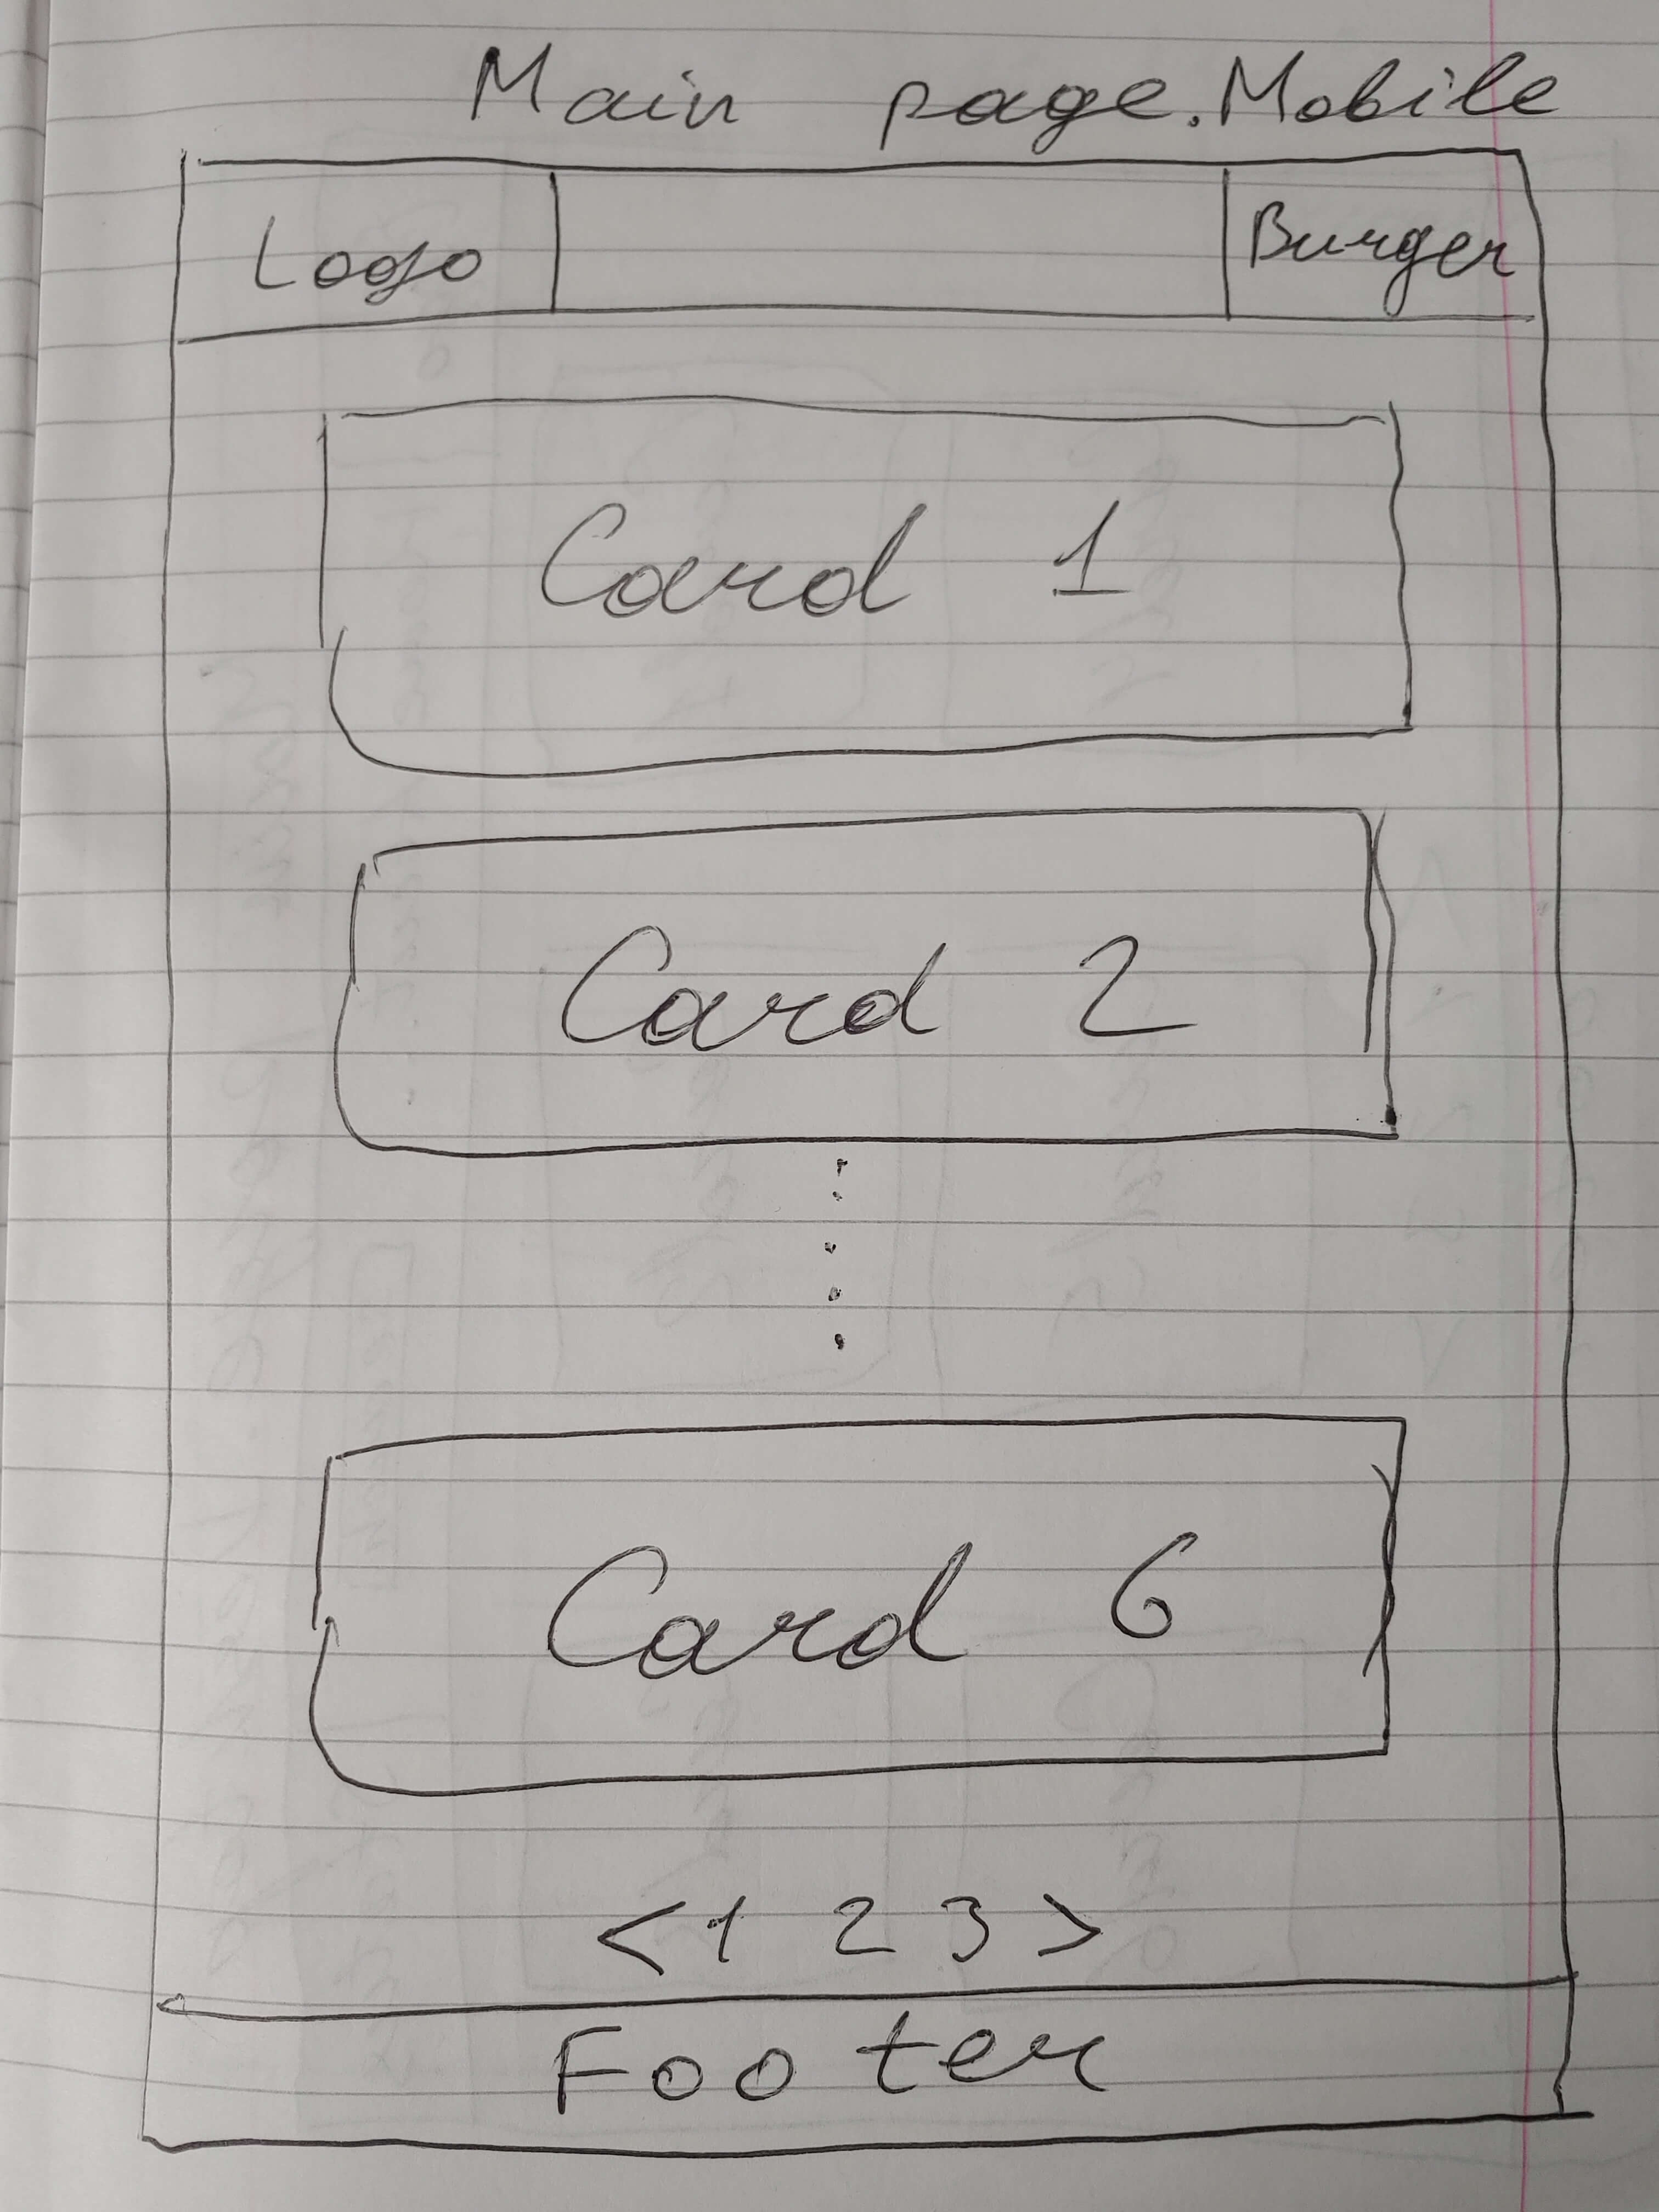 Main page. Mobile
Logo Burger
Card 1
Card 2
Card 6
< 1 2 3 >
Footer